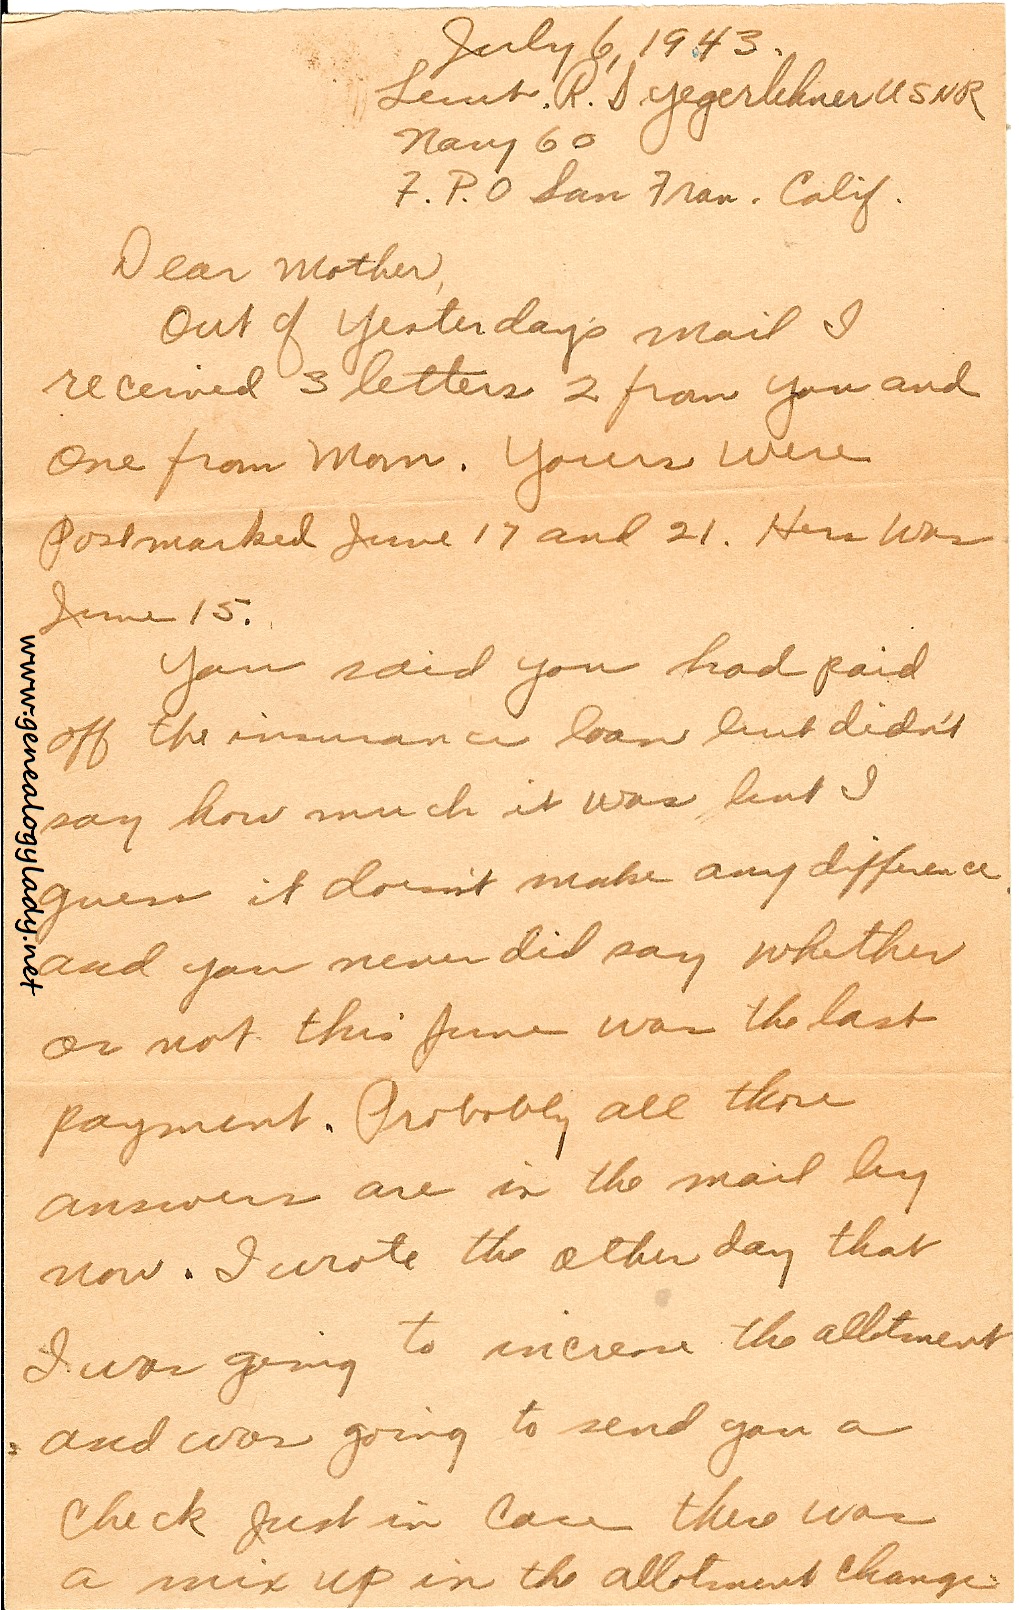 July 6, 1943.
Lieut. R. S Yegerlehner USNR
Navy 60
F.P.O San Fran. Calif.
Dear Mother,
Out of yesterday's mail I
received 3 letters 2 from you and
one from Mom. Yours were
Postmarked June 17 and 21. Hers was
June 15.
You said you had paid
off the insurance loan but didn't
say how much it was but I
guess it doesn't make any difference.
and you never did say whether
or not this June was the last
payment. Probobly all those
answers are in the mail by
now. I wrote the other day that
I was going to increase the allotment
and was going to send you a
check just in case there was
a mix up in the allotment change.
www.genealogylady.net